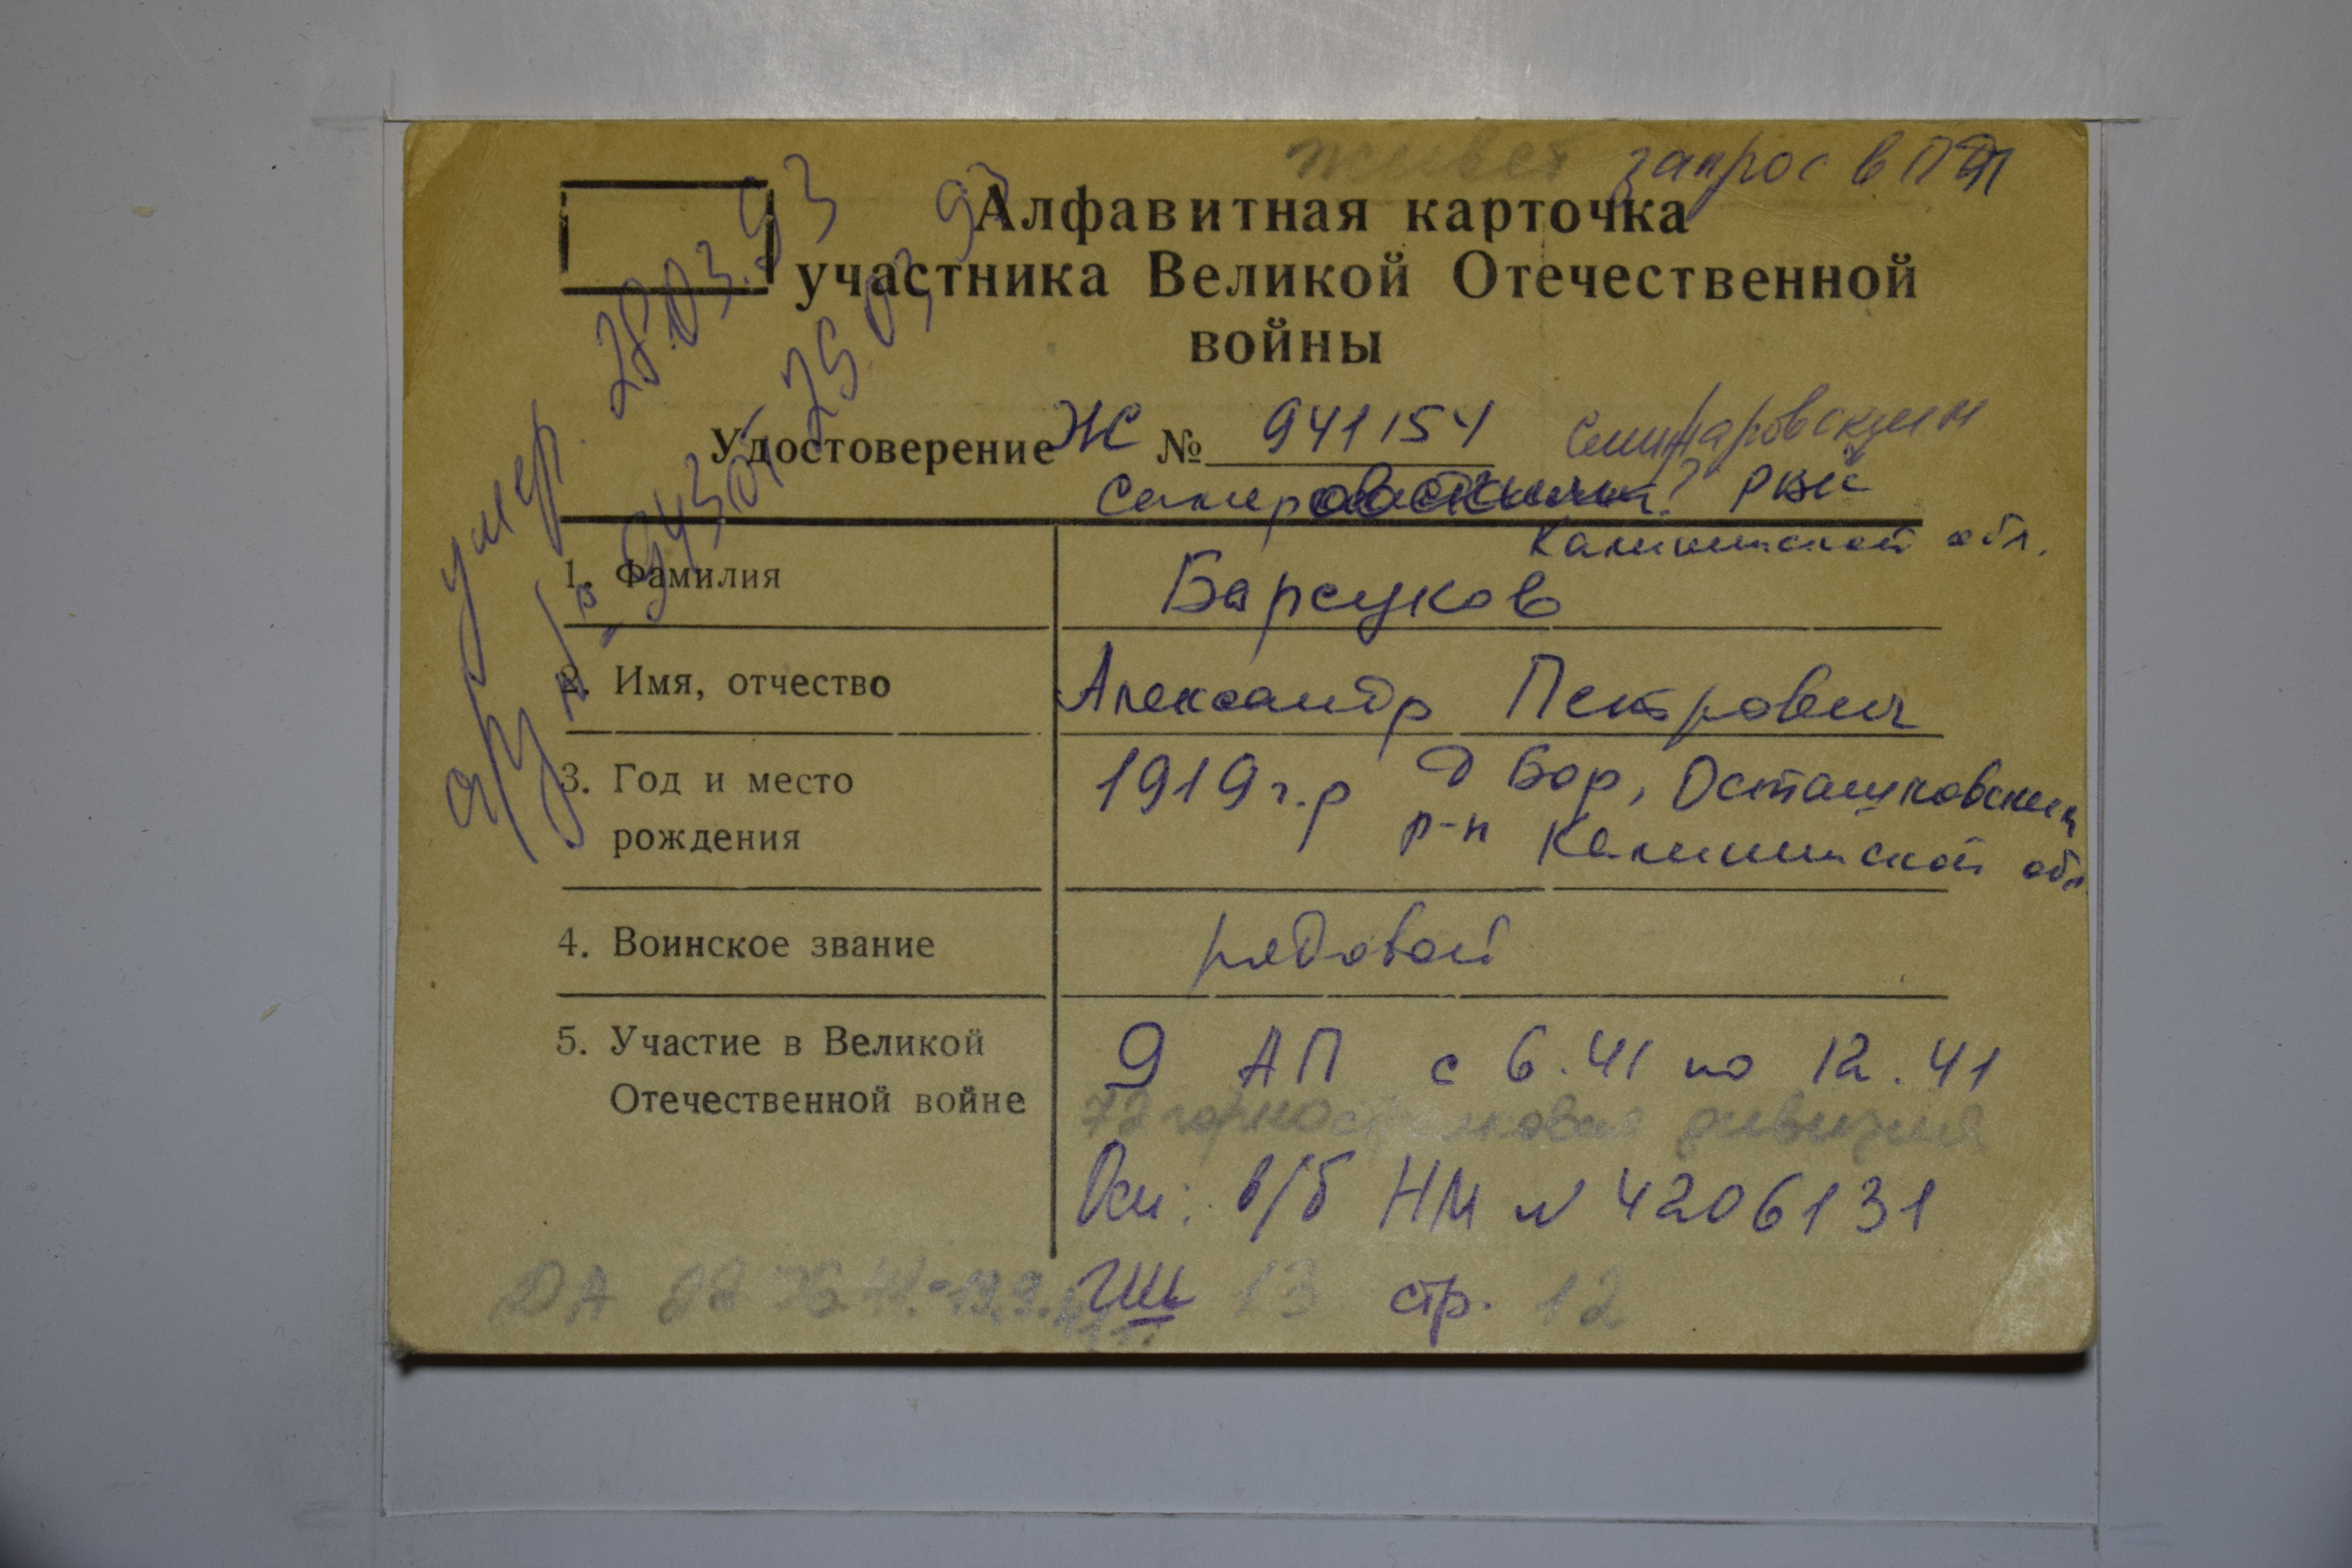 запрос в
Алфавитная карточка
участника Великой Отечественной
войны
умер. 28.03.93
Удостоверение Ж № 941154
РВК
Калининской обл.
1. Фамилия Барсуков
2. Имя, отчество Александр Петрович
3. Год и место рождения 1919 г.р д Бор, Осташковский
р-н Калининской обл.
4. Воинское звание рядовой
5. Участие в Великой Отечественной войне 9 АП с 6.41 по 12.41
72 горнострелковая дивизия
Осн: в/б НМ № 4206131
13 стр. 12